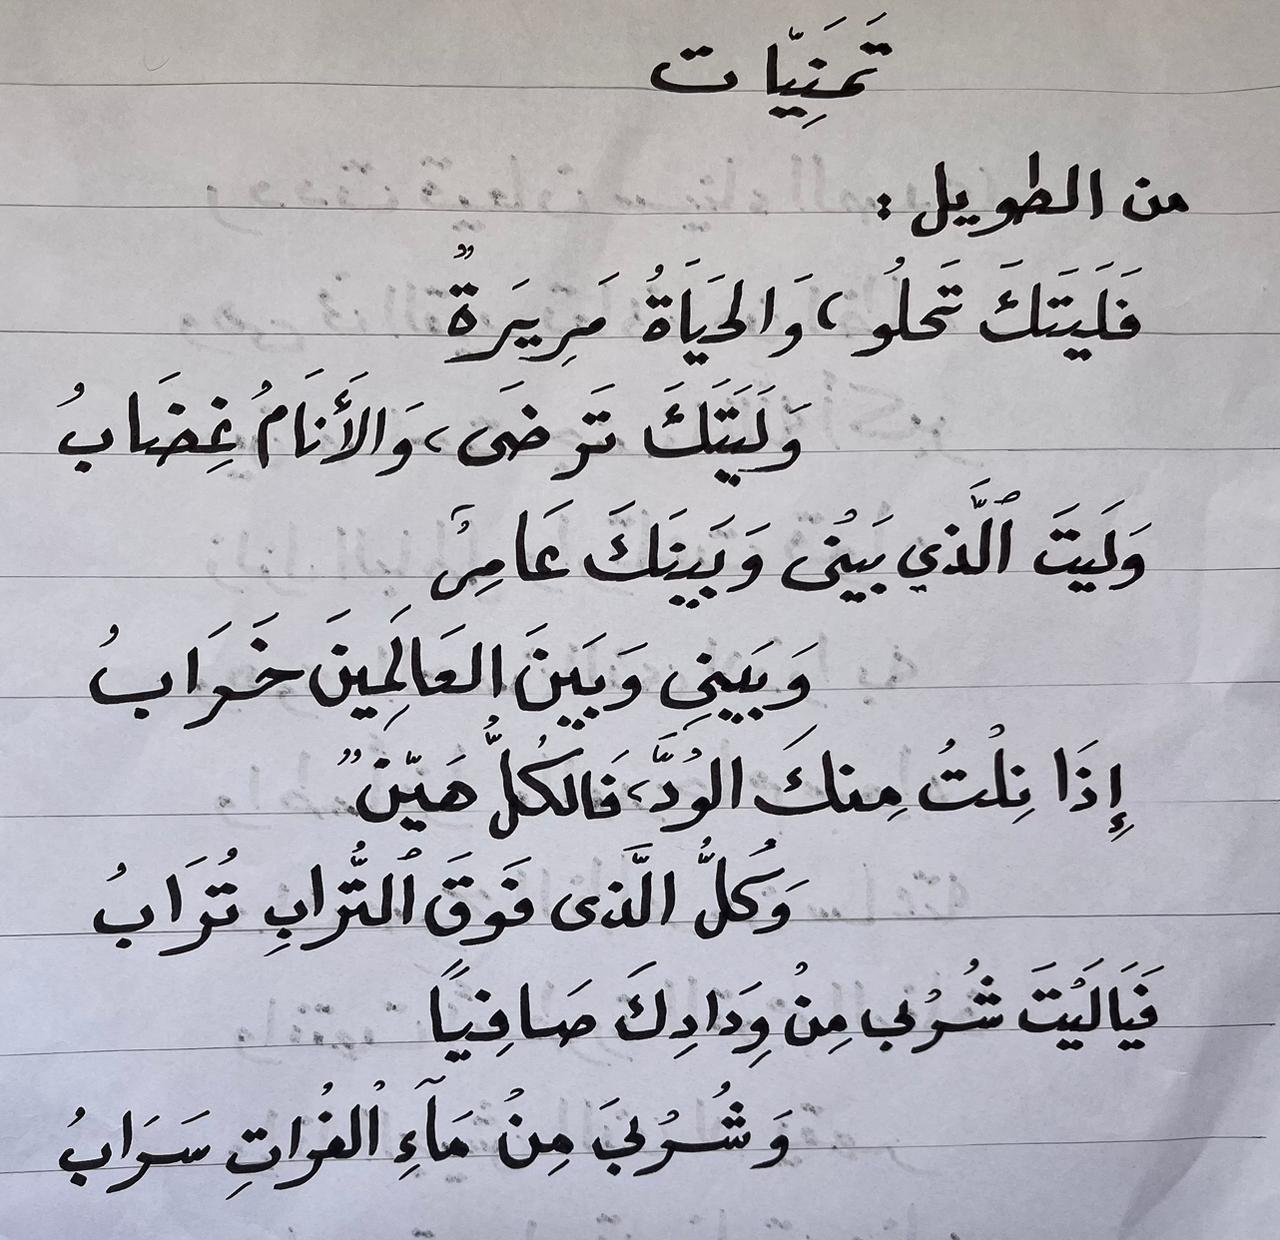 تَمَنِيّات
من الطويل :
فَلَيتَكَ تَحلُو، وَالحَيَاةُ مَرِيرَةٌ
وَلَيَتَكَ تَرضَى، وَالأَنَامُ غِضَابُ
وَلَيتَ ٱلَّذي بَينُى وَبَينَكَ عَامِرُ
وَبَينِي وَبَينَ العَالَمِينَ خَرَابُ
إِذَا نِلْتُ مِنكَ الوُدَّ، فَالكُلُّ هَيّنٌ
وَكُلُّ الَّذى فَوقَ ٱلتُّرابِ تُرَابُ
فَيَالَيْتَ شُرْبي مِنْ وِدَادِكَ صَافِيًا
وَشُرْبيَ مِنْ مَآءِ الْفُراتِ سَرَابُ